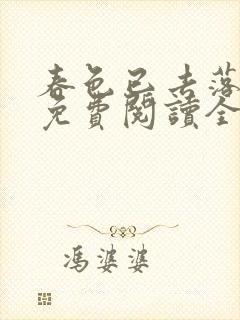 春色已去落
免費閱讀全
馮婆婆